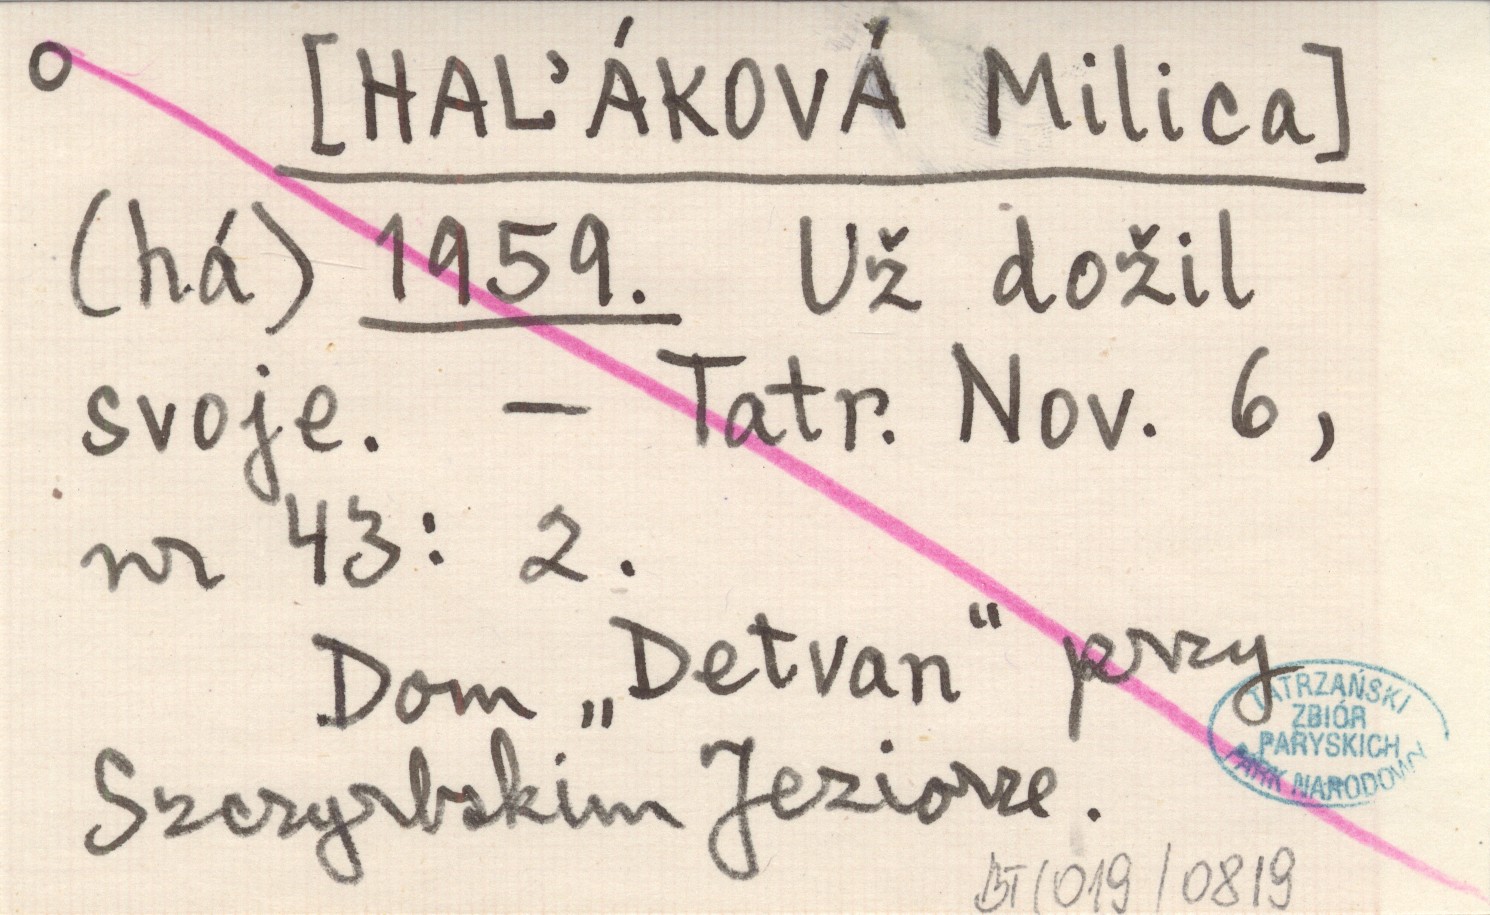 [HAĽÁKOVÁ Milica]
(há) 1959. Už dožil
svoje. – Tatr. Nov. 6,
nr 43: 2.
Dom „Detvan“ przy
Szczyrbskim Jeziorze.
TATRZAŃSKI
ZBIÓR
PARYSKICH
PARK NARODOWY
BT/019/0819